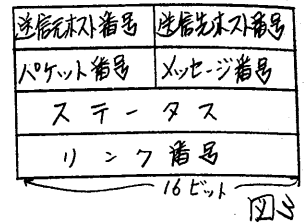 送信元ホスト番号 送信先ホスト番号
パケット番号 メッセージ番号
ステータス
リンク番号
16ビット
図3